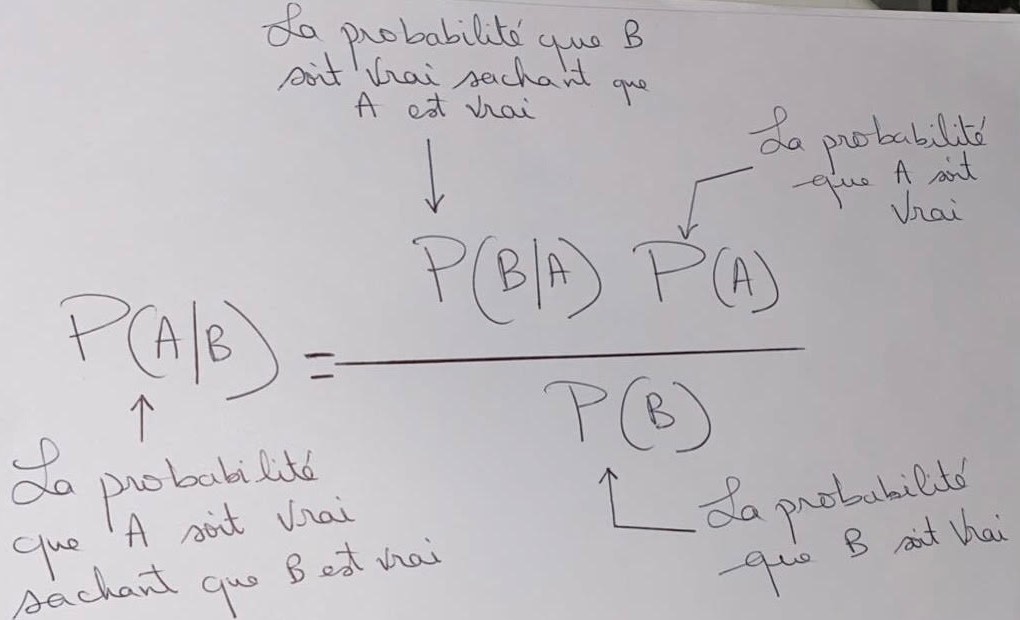 La probabilité que B
soit vrai sachant que
A est vrai
La probabilité
que A soit
vrai
P(B/A) P(A)
P(A/B) =
P(B)
La probabilité
que A soit vrai
sachant que B est vrai
La probabilité
que B soit vrai